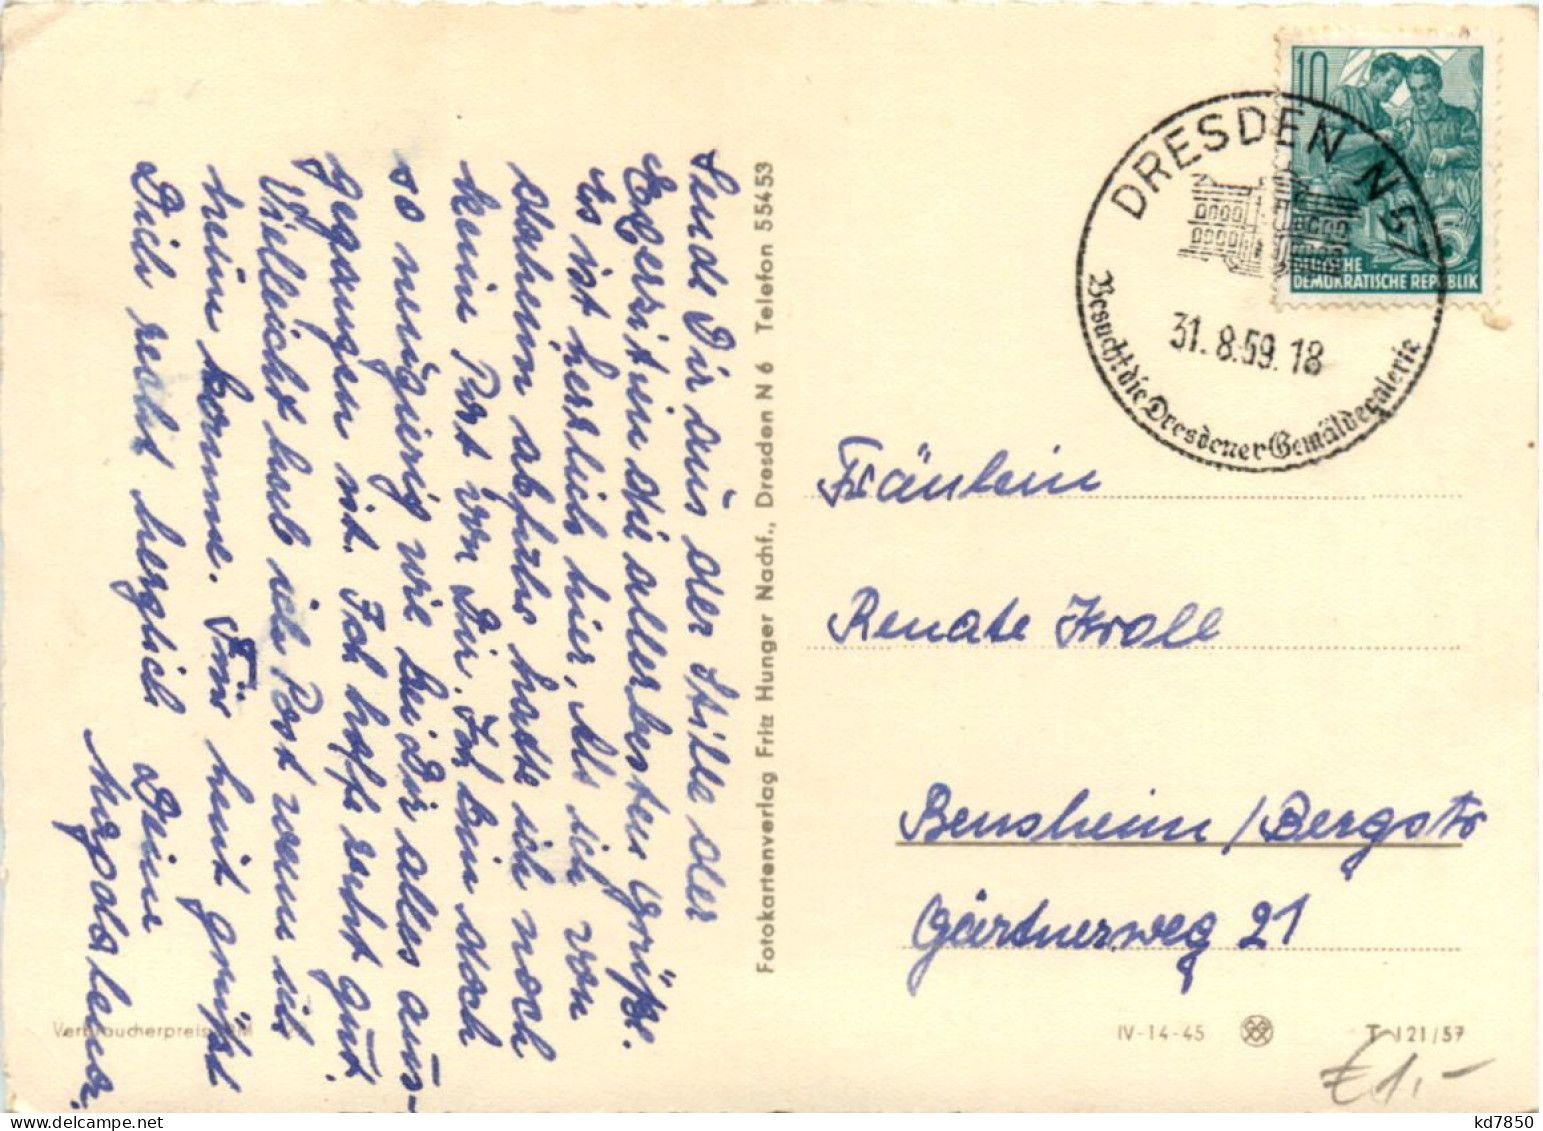 Sende Dir aus der Stille der
Exerzitien die allerbesten Grüße.
Es ist herrlich hier, Als ich von
daheim abfuhr hatte ich noch
keine Post von Dir. Ich bin doch
so neugierig wie bei Dir alles aus-
gegangen ist. Ich hoffe recht gut.
Vielleicht hab ich Post wenn ich
heim komme. Für heut grüßt
Dich recht herzlich Deine
Magdalena.
Verbraucherpreis DM
Fotokartenverlag Fritz Hunger Nachf., Dresden N 6 Telefon 55453
10
5
DEMOKRATISCHE REPUBLIK
DRESDEN N 57
31.8.59.18
Besucht die Dresdener Gemäldegalerie
Fräulein
Renate Kroll
Bensheim / Bergstr
Gärtnerweg 21
IV-14-45
T 121/57
€1,-
kd7850